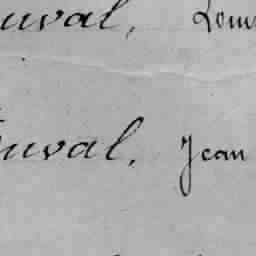 uval, Loui
uval, Jean